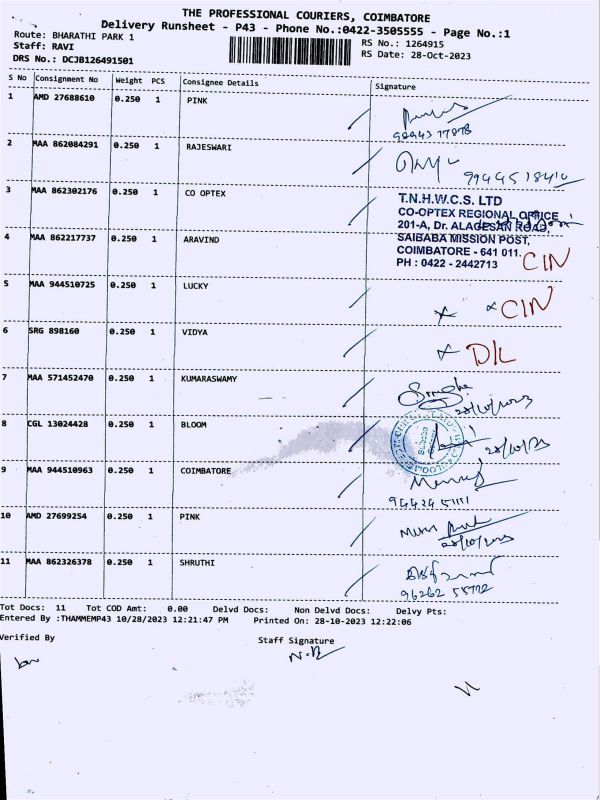 THE PROFESSIONAL COURIERS, COIMBATORE
Delivery Runsheet - P43 - Phone No.:0422-3505555 - Page No.:1
Route: BHARATHI PARK 1
RS No.: 1264915
Staff: RAVI
RS Date: 28-Oct-2023
DRS No.: DCJB126491501
S No Consignment No Weight PCS Consignee Details Signature
1 AMD 27688610 0.250 1 PINK
2 MAA 862084291 0.250 1 RAJESWARI
3 MAA 862302176 0.250 1 CO OPTEX
T.N.H.W.C.S. LTD
CO-OPTEX REGIONAL OFFICE
201-A, Dr. ALAGESAN ROAD,
SAIBABA MISSION POST,
COIMBATORE - 641 011.
PH : 0422 - 2442713
4 MAA 862217737 0.250 1 ARAVIND CIN
5 MAA 944510725 0.250 1 LUCKY CIN
6 SRG 898160 0.250 1 VIDYA D/L
7 MAA 571452470 0.250 1 KUMARASWAMY
28/10/2023
8 CGL 13024428 0.250 1 BLOOM 28/10/23
9 MAA 944510963 0.250 1 COIMBATORE
10 AMD 27699254 0.250 1 PINK
28/10/2023
11 MAA 862326378 0.250 1 SHRUTHI
Tot Docs: 11 Tot COD Amt: 0.00 Delvd Docs: Non Delvd Docs: Delvy Pts:
Entered By :THAMMEMP43 10/28/2023 12:21:47 PM Printed On: 28-10-2023 12:22:06
Verified By Staff Signature